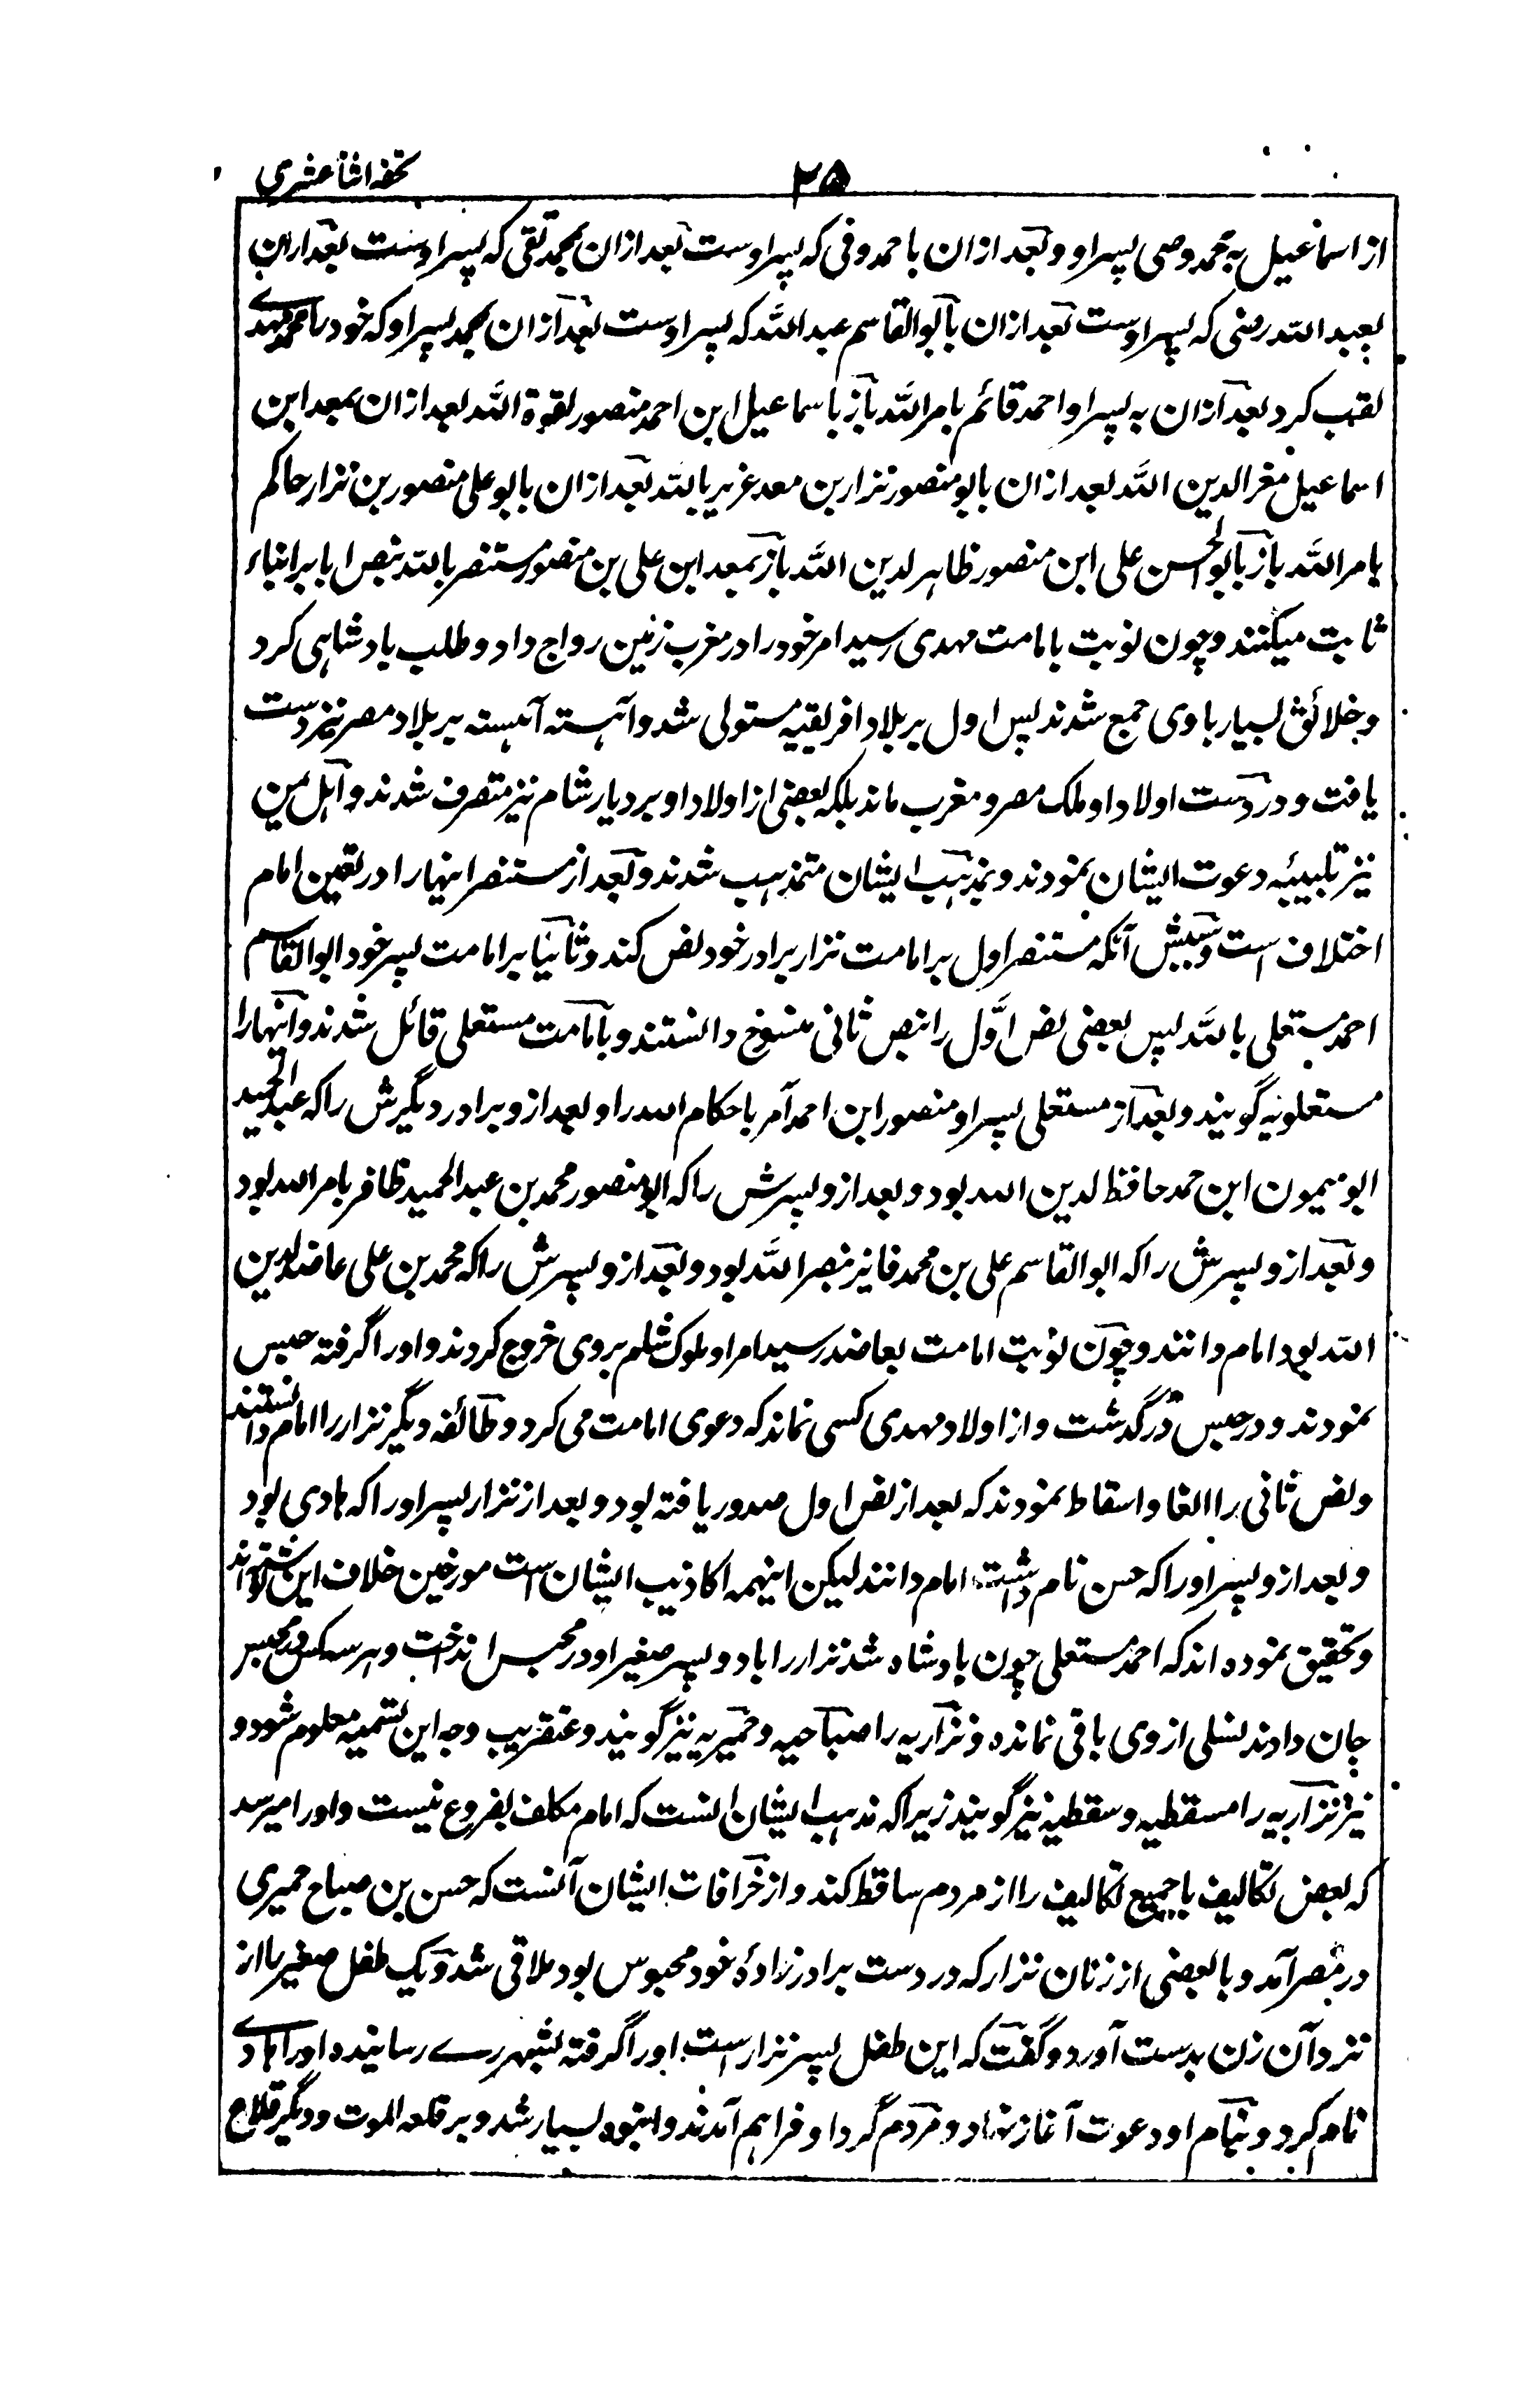 تحفه اثنا عشری
۲۵
از اسماعیل به محمد وصی پسر او و بعد ازان با احمد وفی که پسر اوست بعد ازان بمحمد تقی که پسر اوست بعد ازان
بعبد الله رضی که پسر اوست بعد ازان بابو القاسم عبد الله که پسر اوست بعد ازان بمحمد پسر او که خود را محمد مهدے
لقب کرد بعد ازان به پسر او احمد قائم بامر الله باز باسماعیل ابن احمد منصور بقوة الله بعد ازان بمعد ابن
اسماعیل مغر الدین الله بعد ازان بابو منصور نزار بن معد عزیر بالله بعد ازان بابو علی منصور بن نزار حاکم
بامر الله باز بابو الحسن علی ابن منصور ظاهر لدین الله باز بمعد ابن علی بن منصور مستنصر بالله بنص ابا بر ابناء
ثابت میکنند و چون نوبت بامامت مهدی رسید امر خود را در مغرب زمین رواج داد و طلب بادشاهی کرد
و خلائق بسیار باوی جمع شدند پس اول بر بلاد افریقیه مستولی شد و آهسته آهسته بر بلاد مصر نیز دست
یافت و در دست اولاد او ملک مصر و مغرب ماند بلکه بعضی از اولاد او بر دیار شام نیز متصرف شدند و اهل یمن
نیز تلبیئه دعوت ایشان نمودند و بمذهب ایشان متمذهب شدند و بعد از مستنصر اینها را در تعین امام
اختلاف است و سببش آنکه مستنصر اول بر امامت نزار برادر خود نص کند و ثانیا بر امامت پسر خود ابو القاسم
احمد مستعلی بالله پس بعضی نص اوّل را بنص ثانی منسوخ دانستند و بامامت مستعلی قائل شدند و آنها را
مستعلویه گویند و بعد از مستعلی پسر او منصور ابن احمد آمر باحکام الله را و بعد ازو برادر دیگرش را که عبد الحمید
ابو میمون ابن حمد حافظ لدین الله بود و بعد ازو پسرش را که ابو منصور محمد بن عبد الحمید ظافر بامر الله بود
و بعد ازو پسرش را که ابو القاسم علی بن محمد فائز بنصر الله بود و بعد ازو پسرش را که محمد بن علی عاضد لدین
الله بود امام دانند و چون نوبت امامت بعاضد رسید امرا و ملوک شام بروی خروج کردند و او را گرفته حبس
نمودند و در حبس درگذشت و از اولاد مهدی کسی نماند که دعوی امامت می کرد و طائفه دیگر نزار را امام دانستند
و نص ثانی را الغا و اسقاط نمودند که بعد از نص اول صدور یافته بود و بعد از نزار پسر او را که هادی بود
و بعد ازو پسر او را که حسن نام داشت امام دانند لیکن اینهمه اکاذیب ایشان است مورخین خلاف این نوشته اند
و تحقیق نموده اند که احمد مستعلی چون بادشاه شد نزار را با دو پسر صغیر او در محبس انداخت و هر سه کس در محبس
جان دادند نسلی از وی باقی نمانده و نزاریه را صباحیه و حمیریه نیز گویند و عنقریب وجه این تسمیه معلوم شود و
نیز نزاریه را مسقطیه و سقطیه نیز گویند زیرا که مذهب ایشان انست که امام مکلف بفروع نیست و او را میرسد
که بعض تکالیف یا جمیع تکالیف را از مردم ساقط کند و از خرافات ایشان آنست که حسن بن صباح حمیری
در مصر آمد و با بعضی از زنان نزار که در دست برادر زادۀ خود محبوس بود ملاقی شد و یک طفل صغیر را از
نزد آن زن بدست آورد و گفت که این طفل پسر نزار است او را گرفته بشهر رے رسانیده او را هادے
نام کرد و بنام او دعوت آغاز نهاد و مردم گرد او فراهم آمدند و انبوه بسیار شد و بر قلعه الموت و دیگر قلاع